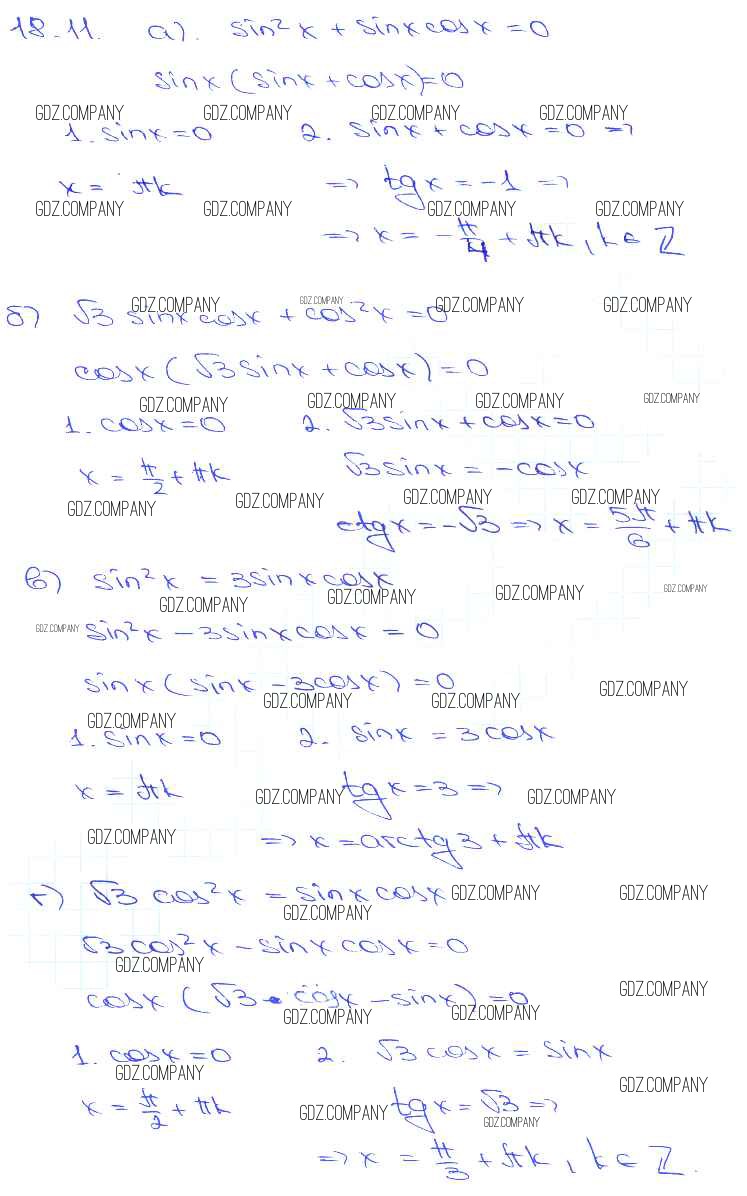 18.11. а). sin²x + sinxcosx = 0
sinx(sinx+cosx)=0
GDZ.COMPANY GDZ.COMPANY GDZ.COMPANY GDZ.COMPANY
1. sinx=0 2. sinx + cosx = 0 =>
x = πk => tgx = -1 =>
GDZ.COMPANY GDZ.COMPANY GDZ.COMPANY GDZ.COMPANY
=> x = -π/4 + πk, k ∈ Z
GDZ.COMPANY GDZ.COMPANY GDZ.COMPANY GDZ.COMPANY
б) √3 sinxcosx + cos²x = 0
cosx(√3sinx + cosx) = 0
GDZ.COMPANY GDZ.COMPANY GDZ.COMPANY GDZ.COMPANY
1. cosx=0 2. √3sinx + cosx=0
x = π/2 + πk √3sinx = -cosx
GDZ.COMPANY GDZ.COMPANY GDZ.COMPANY GDZ.COMPANY
ctgx = -√3 => x = 5π/6 + πk
в) sin²x = 3sinxcosx
GDZ.COMPANY GDZ.COMPANY GDZ.COMPANY GDZ.COMPANY
GDZ.COMPANY sin²x - 3sinxcosx = 0
sinx(sinx - 3cosx) = 0
GDZ.COMPANY GDZ.COMPANY GDZ.COMPANY GDZ.COMPANY
1. sinx=0 2. sinx = 3cosx
x = πk tgx = 3 =>
GDZ.COMPANY GDZ.COMPANY
GDZ.COMPANY => x = arctg3 + πk
г) √3 cos²x = sinxcosx GDZ.COMPANY GDZ.COMPANY
GDZ.COMPANY
√3cos²x - sinxcosx = 0
GDZ.COMPANY
cosx(√3 · cosx - sinx) = 0 GDZ.COMPANY
GDZ.COMPANY GDZ.COMPANY
1. cosx=0 2. √3cosx = sinx
GDZ.COMPANY GDZ.COMPANY
x = π/2 + πk GDZ.COMPANY tgx = √3 =>
GDZ.COMPANY
=> x = π/3 + πk, k ∈ Z.